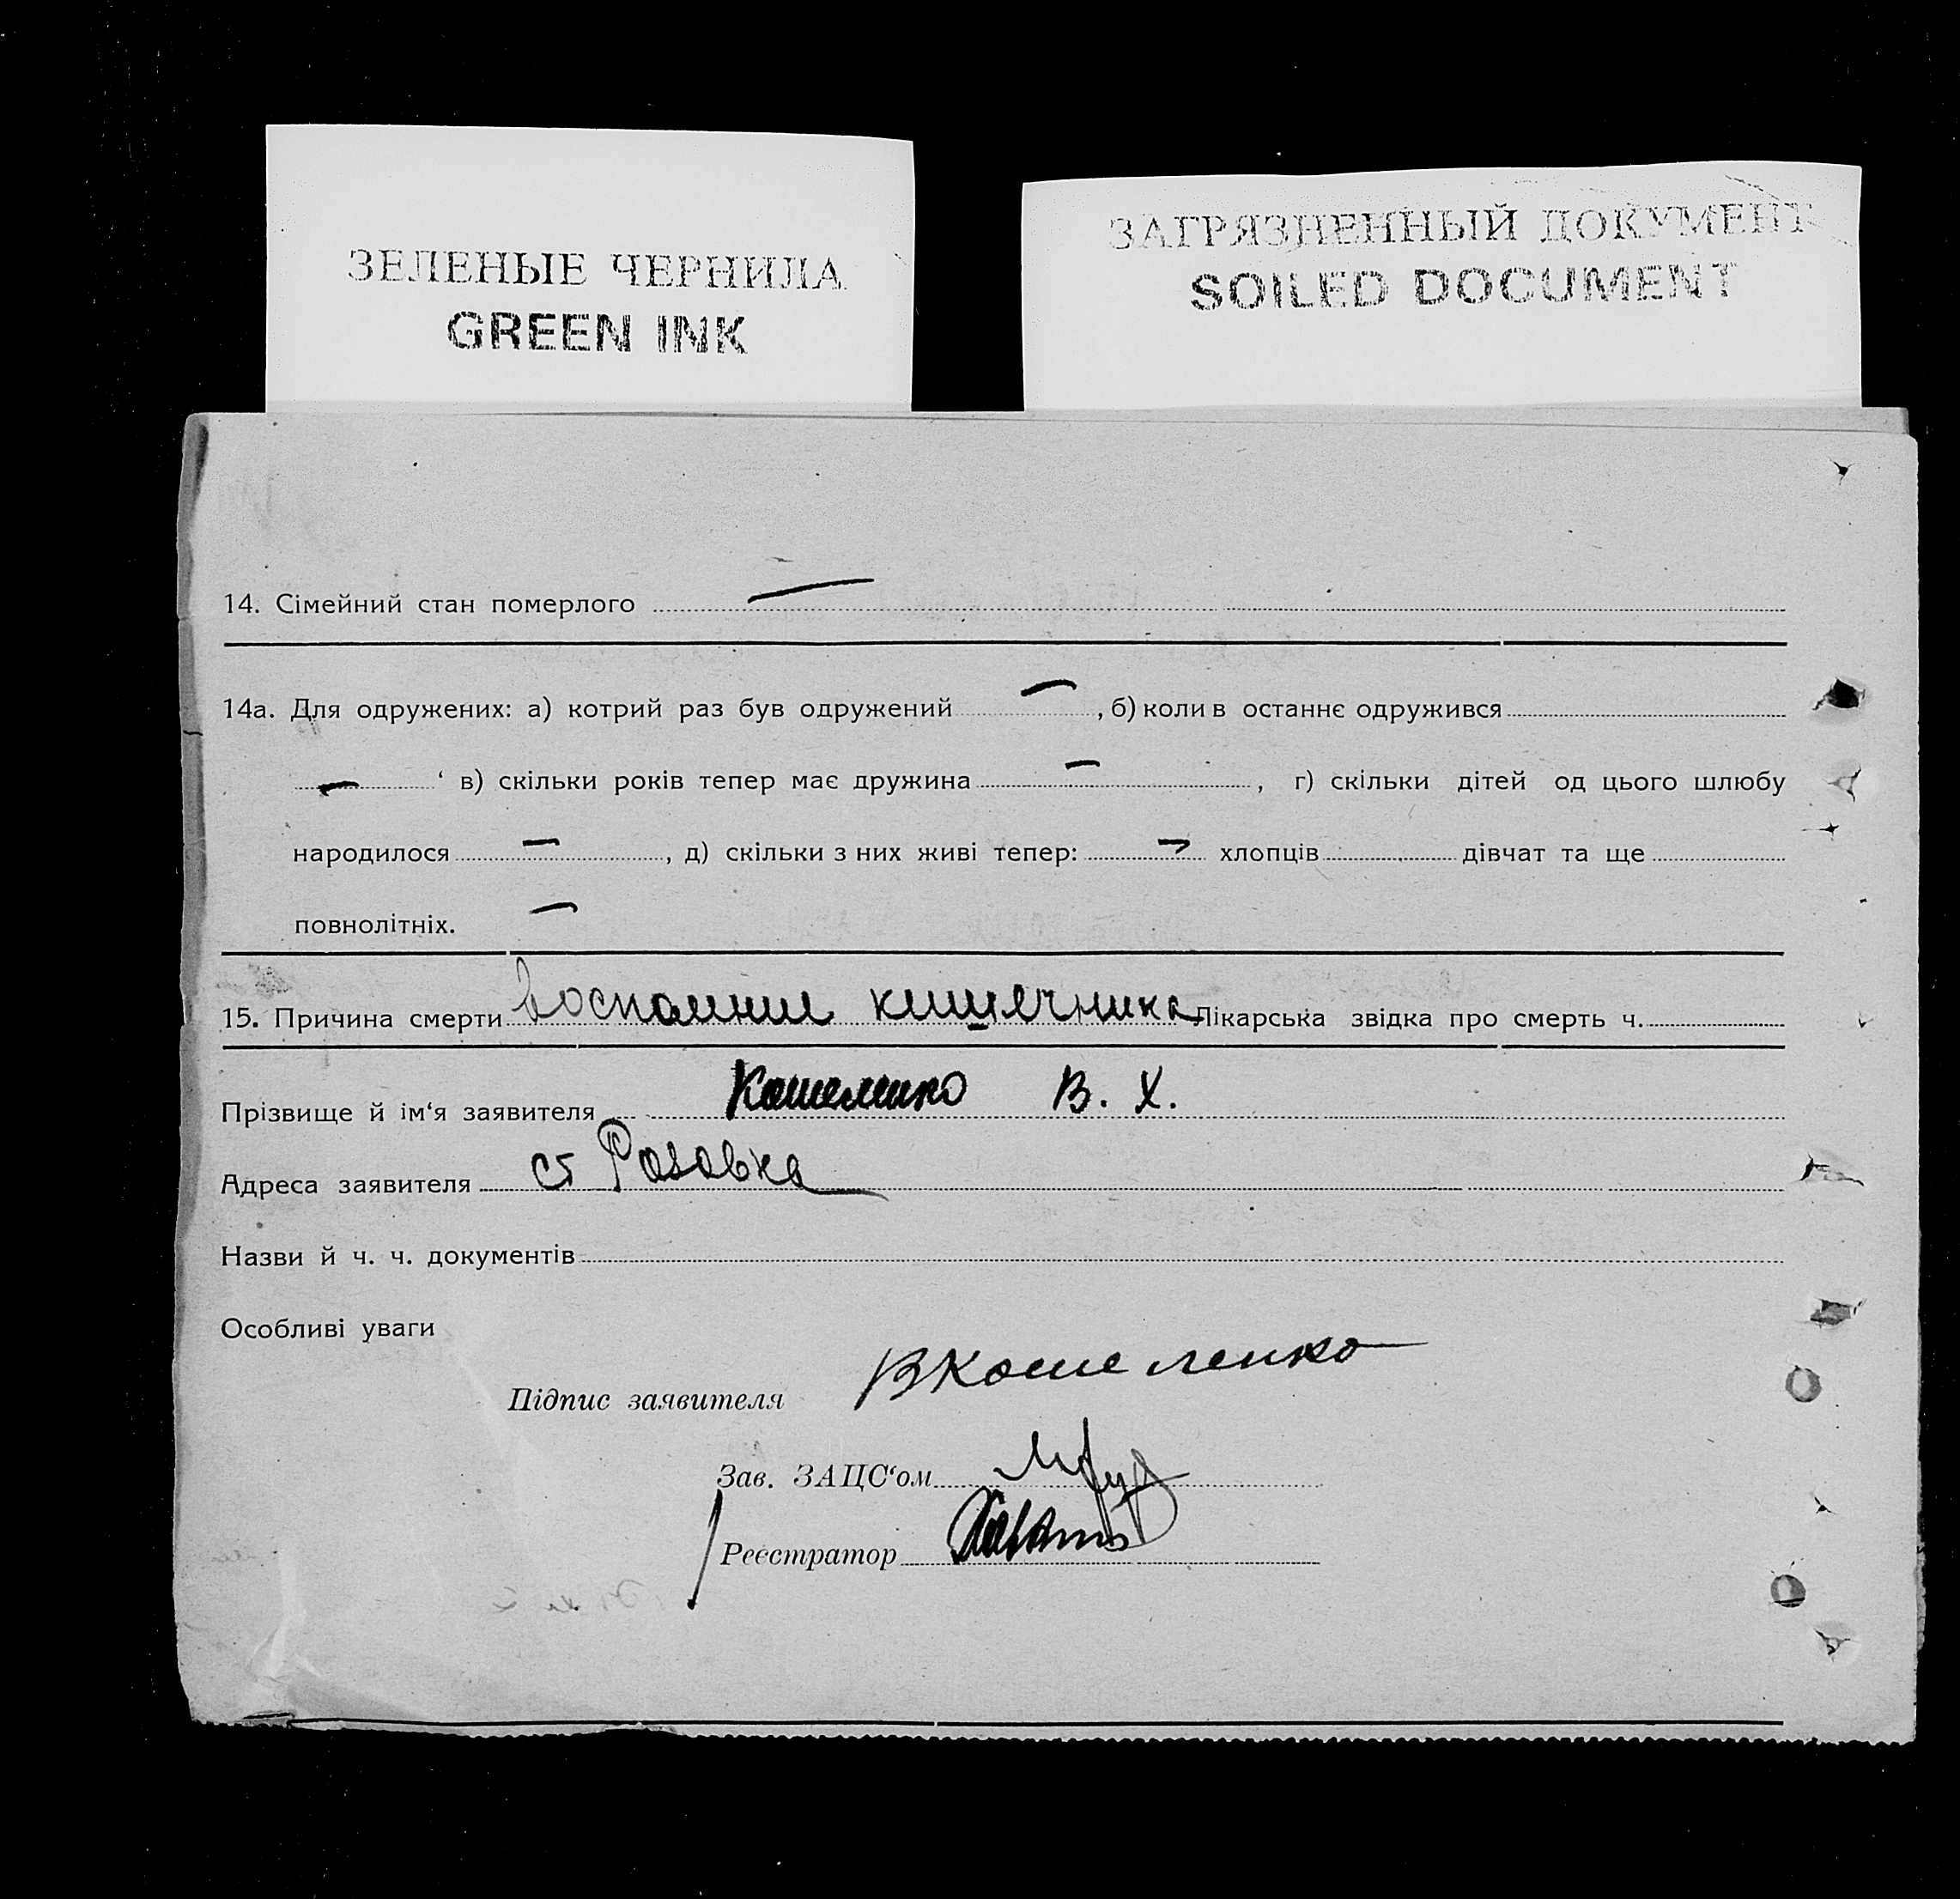 ЗЕЛЕНЫЕ ЧЕРНИЛА
GREEN INK
ЗАГРЯЗНЕННЫЙ ДОКУМЕНТ
SOILED DOCUMENT
14. Сімейний стан померлого —
14а. Для одружених: а) котрий раз був одружений —, б) коли в останнє одружився
— ‘ в) скільки років тепер має дружина —, г) скільки дітей од цього шлюбу
народилося —, д) скільки з них живі тепер: — хлопців дівчат та ще
повнолітніх. —
15. Причина смерти воспалении кишечника Лікарська звідка про смерть ч.
Прізвище й ім‘я заявителя Кошеленко В. Х.
Адреса заявителя ст Розовка
Назви й ч. ч. документів
Особливі уваги
Підпис заявителя ВКошеленко
Зав. ЗАЦС‘ом
Реєстратор